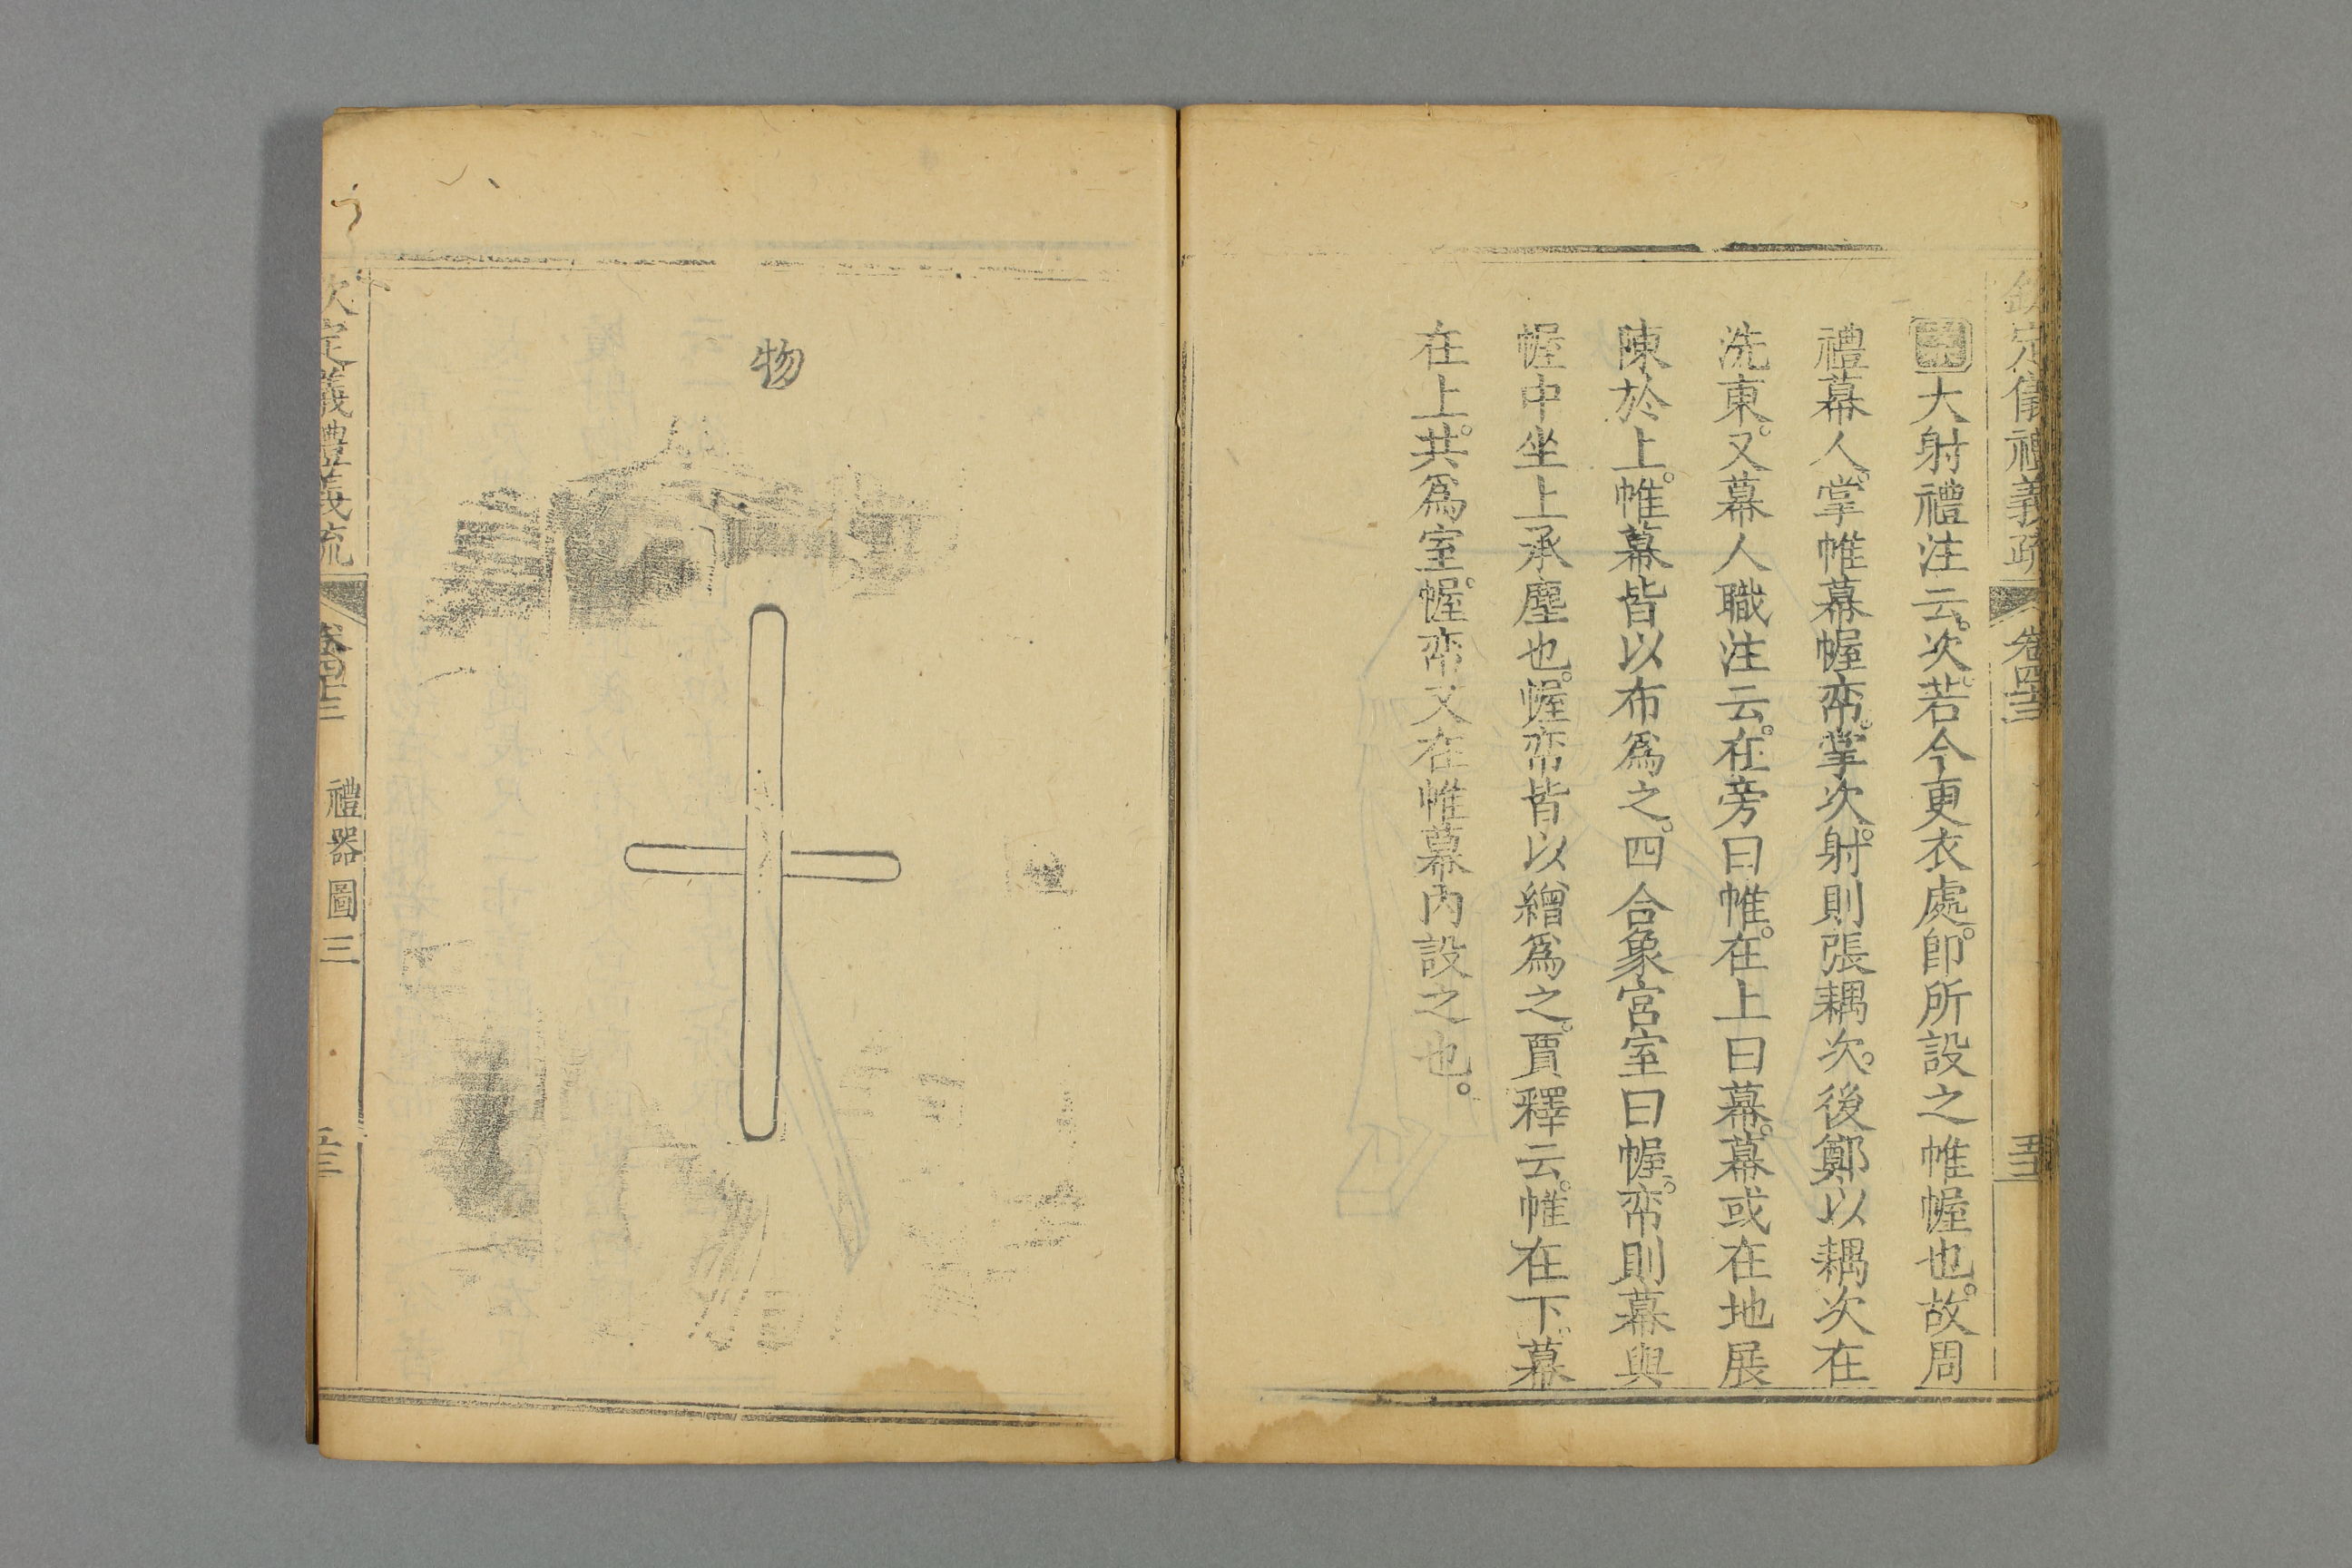 欽定儀禮義疏 卷四十三
案大射禮注云。次。若今更衣處。卽所設之帷幄也。故周
禮幕人。掌帷幕幄帟。掌次。射則張耦次。後鄭以耦次在
洗東。又幕人職注云。在旁曰帷。在上曰幕。幕或在地展
陳於上。帷幕皆以布爲之。四合象宮室曰幄。帟則幕與
幄中坐上承塵也。幄帟皆以繒爲之。賈釋云。帷在下。幕
在上。共爲室。幄帟又在帷幕內設之也。
物
欽定儀禮義疏 卷四十三 禮器圖三